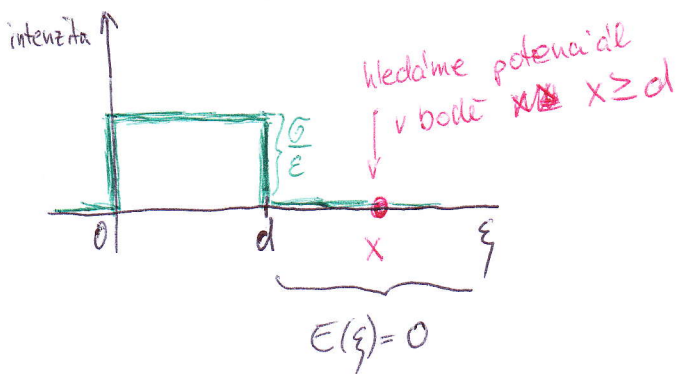 intenzita
hledáme potenciál
v bodě x ≥ d
σ
ε
0
d
x
ξ
E(ξ) = 0